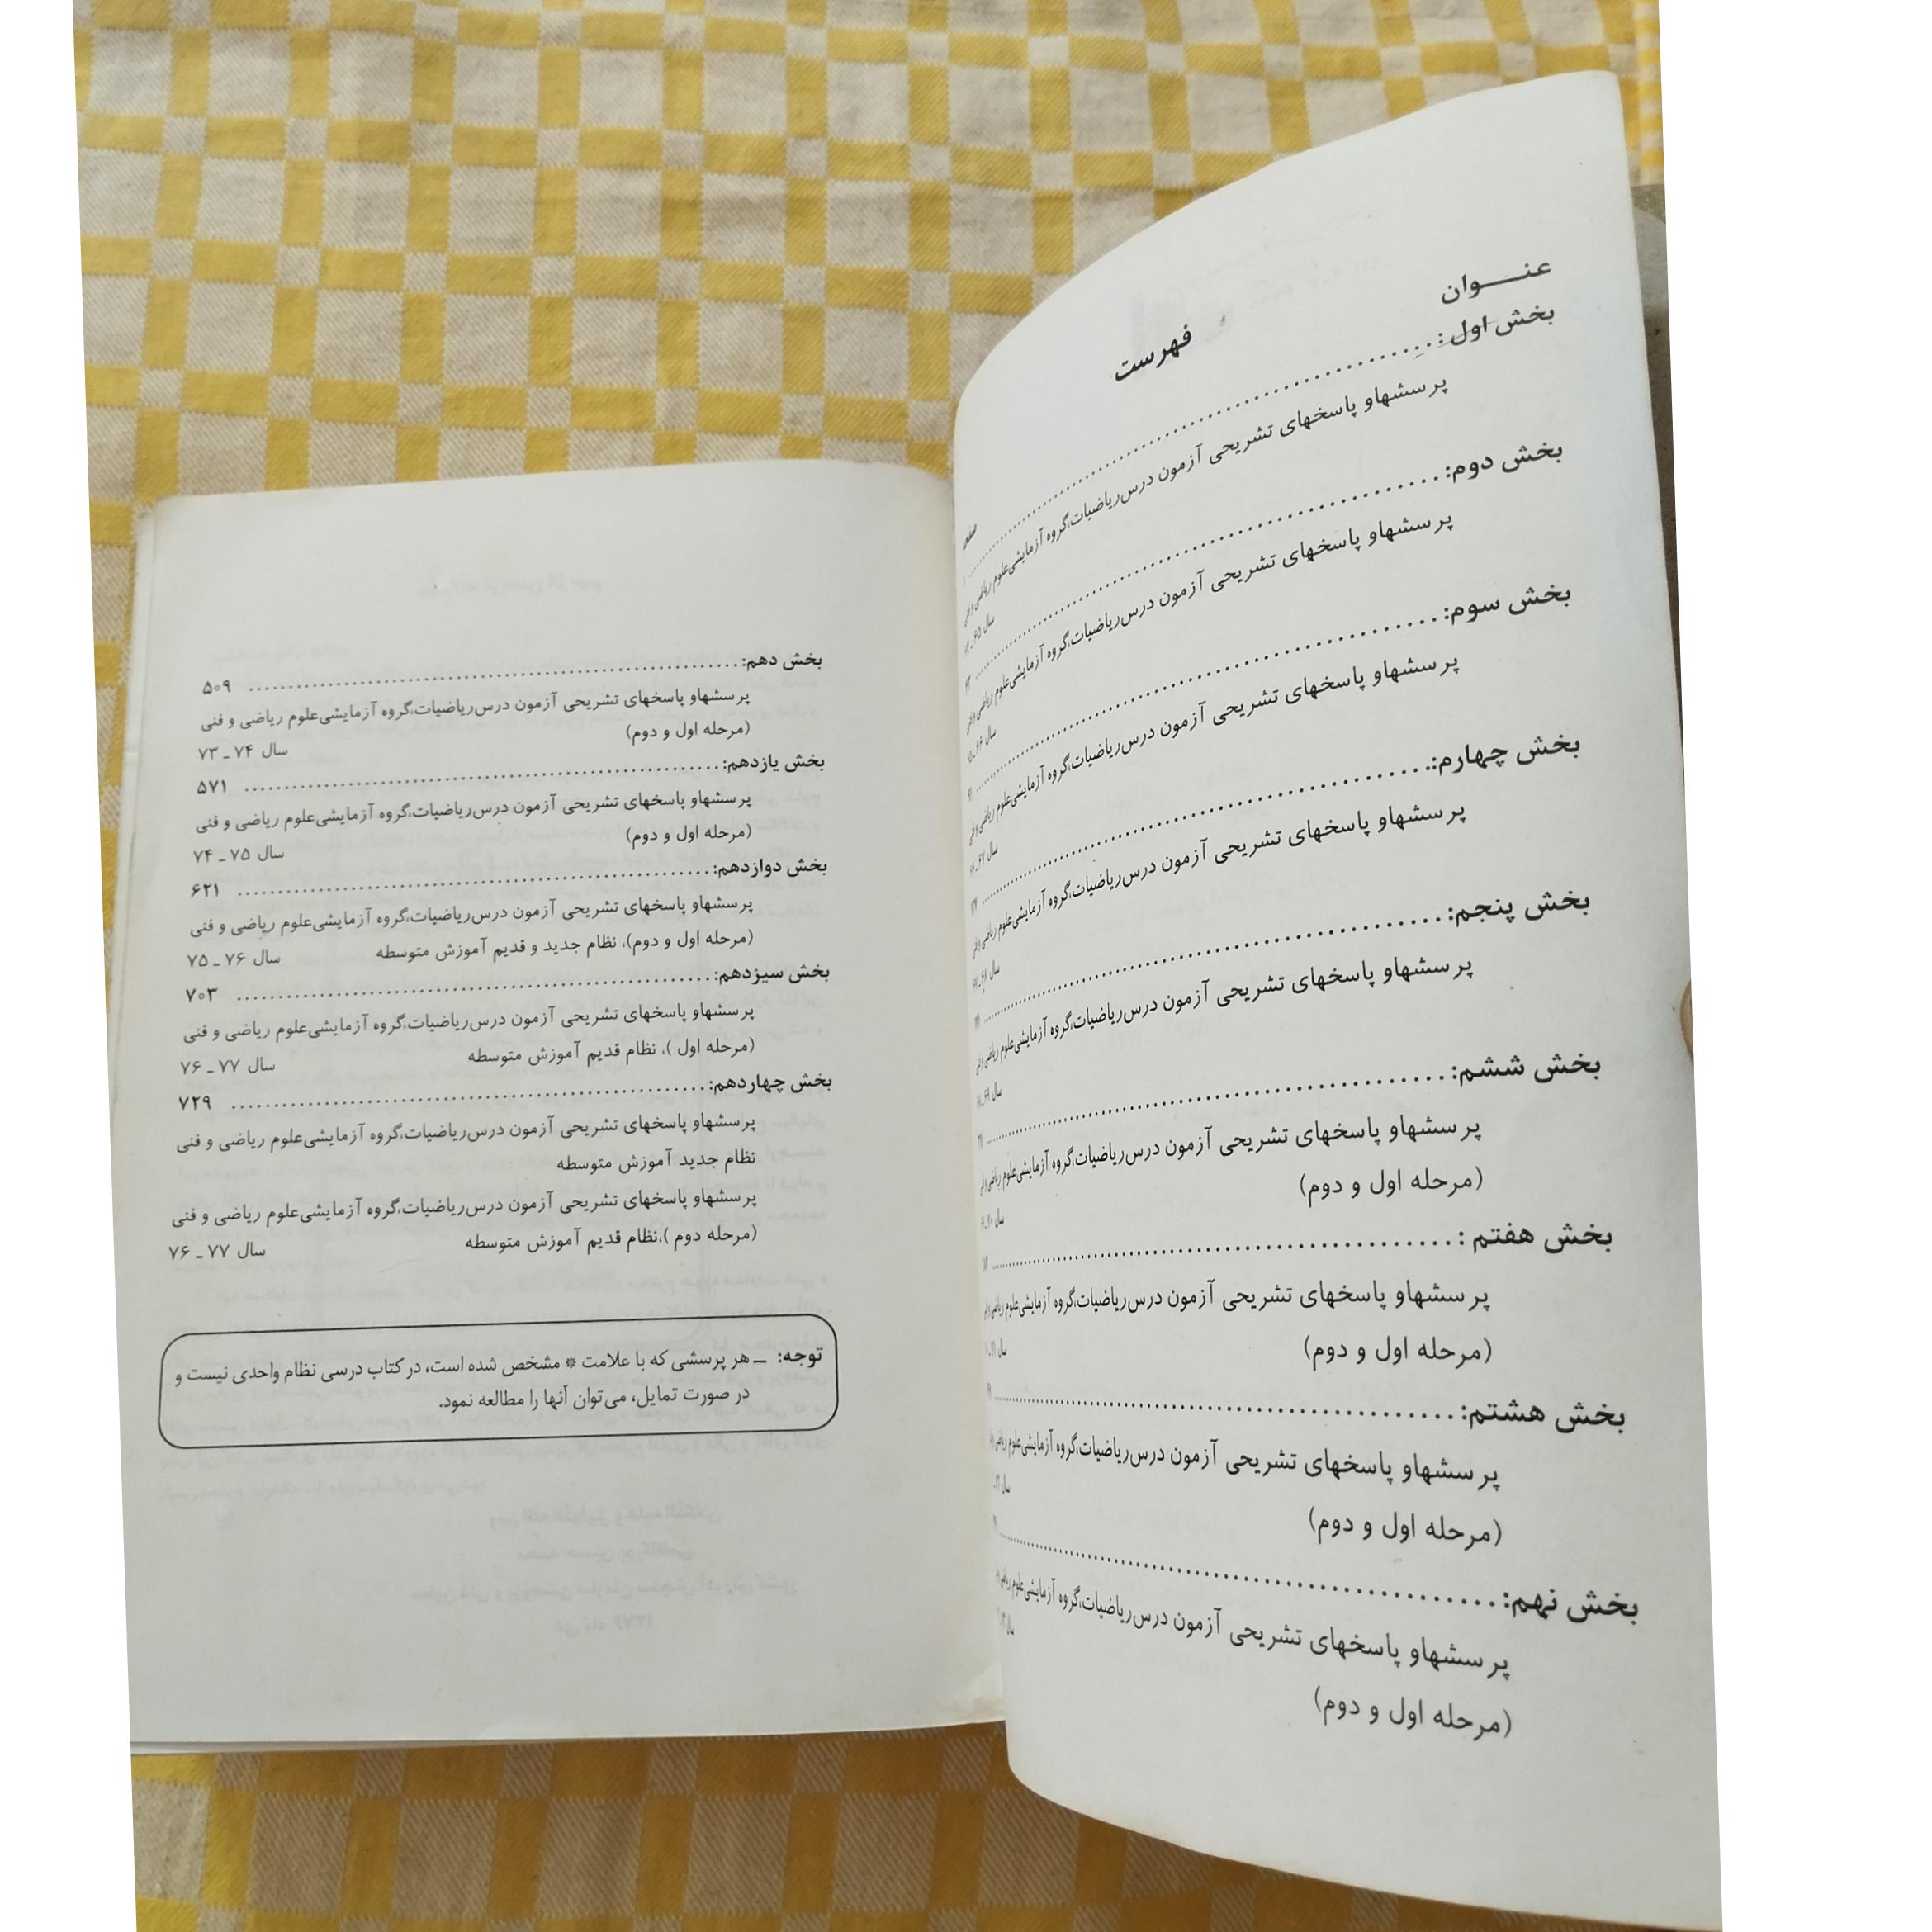 فهرست
عنـــوان
صفحه
بخش اول:
پرسشهاو پاسخهای تشریحی آزمون درس‌ریاضیات،گروه آزمایشی‌علوم ریاضی و فنی
سال ۶۵ ـ ۶۴
بخش دوم:
پرسشهاو پاسخهای تشریحی آزمون درس‌ریاضیات،گروه آزمایشی‌علوم ریاضی و فنی
سال ۶۶ ـ ۶۵
بخش سوم:
پرسشهاو پاسخهای تشریحی آزمون درس‌ریاضیات،گروه آزمایشی‌علوم ریاضی و فنی
سال ۶۷ ـ
بخش چهارم:
پرسشهاو پاسخهای تشریحی آزمون درس‌ریاضیات،گروه آزمایشی‌علوم ریاضی و فنی
سال ۶۸ ـ
بخش پنجم:
پرسشهاو پاسخهای تشریحی آزمون درس‌ریاضیات،گروه آزمایشی‌علوم ریاضی و فنی
سال ۶۹ ـ
بخش ششم:
پرسشهاو پاسخهای تشریحی آزمون درس‌ریاضیات،گروه آزمایشی‌علوم ریاضی
(مرحله اول و دوم) سال
بخش هفتم :
پرسشهاو پاسخهای تشریحی آزمون درس‌ریاضیات،گروه آزمایشی‌علوم ریاضی
(مرحله اول و دوم) سال
بخش هشتم:
پرسشهاو پاسخهای تشریحی آزمون درس‌ریاضیات،گروه آزمایشی‌علوم ریاضی
(مرحله اول و دوم) سال
بخش نهم:
پرسشهاو پاسخهای تشریحی آزمون درس‌ریاضیات،گروه آزمایشی‌علوم ریاضی
(مرحله اول و دوم)
بخش دهم: ........ ۵۰۹
پرسشهاو پاسخهای تشریحی آزمون درس‌ریاضیات،گروه آزمایشی‌علوم ریاضی و فنی
(مرحله اول و دوم) سال ۷۴ ـ ۷۳
بخش یازدهم: ........ ۵۷۱
پرسشهاو پاسخهای تشریحی آزمون درس‌ریاضیات،گروه آزمایشی‌علوم ریاضی و فنی
(مرحله اول و دوم) سال ۷۵ ـ ۷۴
بخش دوازدهم: ........ ۶۲۱
پرسشهاو پاسخهای تشریحی آزمون درس‌ریاضیات،گروه آزمایشی‌علوم ریاضی و فنی
(مرحله اول و دوم)، نظام جدید و قدیم آموزش متوسطه سال ۷۶ ـ ۷۵
بخش سیزدهم: ........ ۷۰۳
پرسشهاو پاسخهای تشریحی آزمون درس‌ریاضیات،گروه آزمایشی‌علوم ریاضی و فنی
(مرحله اول )، نظام قدیم آموزش متوسطه سال ۷۷ ـ ۷۶
بخش چهاردهم: ........ ۷۲۹
پرسشهاو پاسخهای تشریحی آزمون درس‌ریاضیات،گروه آزمایشی‌علوم ریاضی و فنی
نظام جدید آموزش متوسطه
پرسشهاو پاسخهای تشریحی آزمون درس‌ریاضیات،گروه آزمایشی‌علوم ریاضی و فنی
(مرحله دوم )،نظام قدیم آموزش متوسطه سال ۷۷ ـ ۷۶
توجه: ــ هر پرسشی که با علامت * مشخص شده است، در کتاب درسی نظام واحدی نیست و
در صورت تمایل، می‌توان آنها را مطالعه نمود.